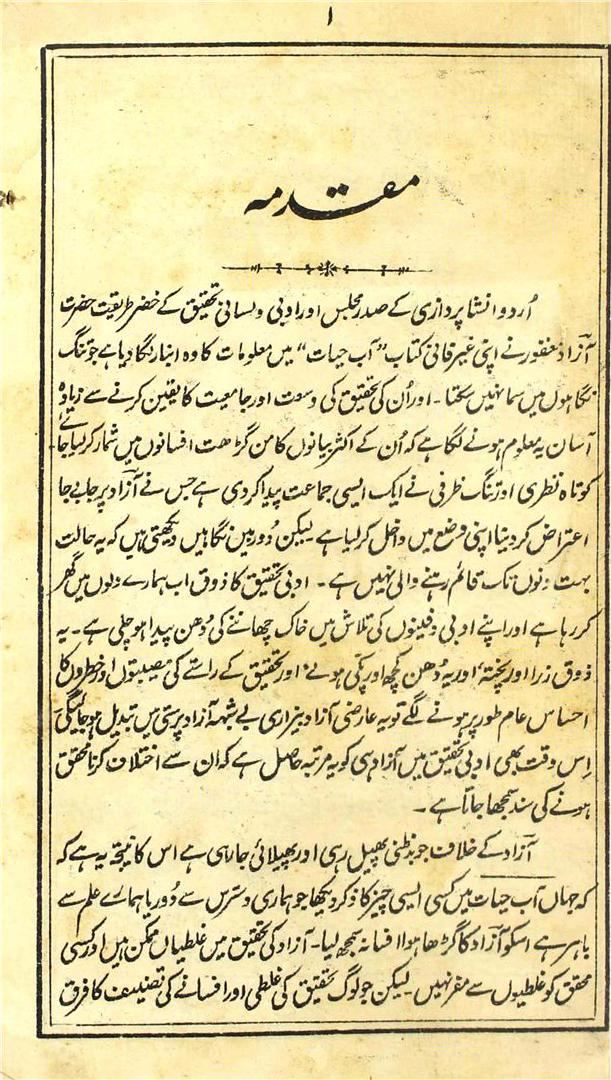 ۱
مقدمہ
اُردو انشا پردازی کے صدر مجلس اور ادبی و لسانی تحقیق کے خضر طریقت حضرت
آزاد مغفور نے اپنی غیر فانی کتاب "آب حیات" میں معلومات کا وہ انبار لگا دیا ہے جو تنگ
نگاہوں میں سما نہیں سکتا۔ اور اُن کی تحقیق کی وسعت اور جامعیت کا یقین کرنے سے زیادہ
آسان یہ معلوم ہونے لگا ہے کہ اُن کے اکثر بیانوں کا من گڑھت افسانوں میں شمار کر لیا جائے
کوتاہ نظری اور تنگ ظرفی نے ایک ایسی جماعت پیدا کر دی ہے جس نے آزاد پر جا بے جا
اعتراض کر دینا اپنی وضع میں داخل کر لیا ہے لیکن دُور بین نگاہیں دیکھتی ہیں کہ یہ حالت
بہت دنوں تک قائم رہنے والی نہیں ہے۔ ادبی تحقیق کا ذوق اب ہمارے دلوں میں گھر
کر رہا ہے اور اپنے ادبی دفینوں کی تلاش میں خاک چھاننے کی دُھن پیدا ہو چلی ہے۔ یہ
ذوق ذرا اور پختہ، اور یہ دُھن کچھ اور پکی ہو لے، اور تحقیق کے راستے کی مصیبتوں اور خطروں کا
احساس عام طور پر ہونے لگے تو یہ عارضی آزاد بیزاری بے شبہہ آزاد پرستی میں تبدیل ہو جائیگی
اِس وقت بھی ادبی تحقیق میں آزاد ہی کو یہ مرتبہ حاصل ہے کہ ان سے اختلاف کرنا محقق
ہونے کی سند سمجھا جاتا ہے۔
آزاد کے خلاف جو بدظنی پھیل رہی اور پھیلائی جا رہی ہے اس کا نتیجہ یہ ہے کہ
کہ جہاں آب حیات میں کسی ایسی چیز کا ذکر دیکھا جو ہماری دسترس سے دُور یا ہمارے علم سے
باہر ہے اسکو آزاد کا گڑھا ہوا افسانہ سمجھ لیا۔ آزاد کی تحقیق میں غلطیاں ممکن ہیں اور کسی
محقق کو غلطیوں سے مفر نہیں۔ لیکن جو لوگ تحقیق کی غلطی اور افسانے کی تصنیف کا فرق